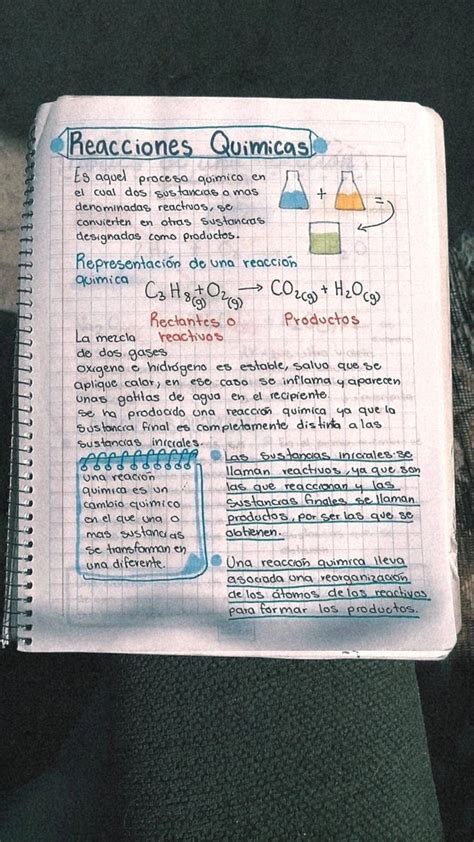 Reacciones Quimicas
Es aquel proceso quimico en
el cual dos sustancias o mas
denominadas reactivos, se
convierten en otras sustancias
designadas como productos.
+
=
Representación de una reacción
quimica
C3H8(g)+O2(g) → CO2(g)+H2O(g)
Rectantes o
reactivos
Productos
La mezcla
de dos gases
oxigeno e hidrógeno es estable, salvo que se
aplique calor, en ese caso se inflama y aparecen
unas gotitas de agua en el recipiente.
se ha producido una reacción quimica, ya que la
sustancia final es completamente distinta a las
sustancias iniciales.
una reación
quimica es un
cambio quimico
en el que una o
mas sustancias
se transforman en
una diferente.
Las sustancias iniciales se
llaman reactivos, ya que son
las que reaccionan y las
sustancias finales se llaman
productos, por ser las que se
obtienen.
Una reacción quimica lleva
asociada una reorganización
de los átomos de los reactivos
para formar los productos.